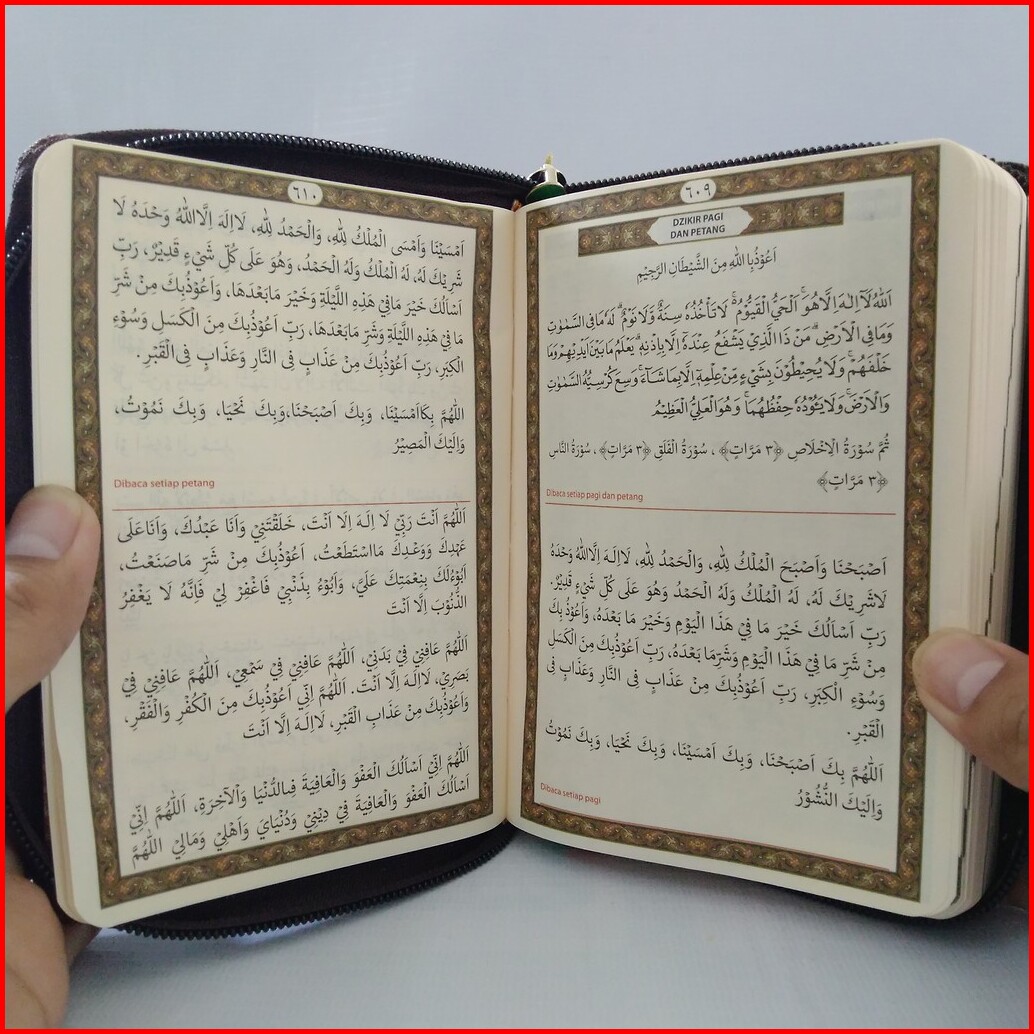 ٦٠٩
DZIKIR PAGI
DAN PETANG
اَعُوْذُبِا للهِ مِنَ الشَّيْطَانِ الرَّجِيْمِ
اَللّٰهُ لَآ اِلٰهَ اِلَّا هُوَۚ اَلْحَيُّ الْقَيُّوْمُ ەۚ لَا تَأْخُذُهٗ سِنَةٌ وَّلَا نَوْمٌۗ لَهٗ مَا فِى السَّمٰوٰتِ
وَمَا فِى الْاَرْضِۗ مَنْ ذَا الَّذِيْ يَشْفَعُ عِنْدَهٗٓ اِلَّا بِاِذْنِهٖۗ يَعْلَمُ مَا بَيْنَ اَيْدِيْهِمْ وَمَا
خَلْفَهُمْۚ وَلَا يُحِيْطُوْنَ بِشَيْءٍ مِّنْ عِلْمِهٖٓ اِلَّا بِمَا شَآءَۚ وَسِعَ كُرْسِيُّهُ السَّمٰوٰتِ
وَالْاَرْضَۚ وَلَا يَـُٔوْدُهٗ حِفْظُهُمَاۚ وَهُوَ الْعَلِيُّ الْعَظِيْمُ
ثُمَّ سُوْرَةُ الْاِخْلَاصِ ﴿٣ مَرَّاتٍ﴾ ، سُوْرَةُ الْفَلَقِ ﴿٣ مَرَّاتٍ﴾ ، سُوْرَةُ النَّاسِ
﴿٣ مَرَّاتٍ﴾
Dibaca setiap pagi dan petang
اَصْبَحْنَا وَاَصْبَحَ الْمُلْكُ لِلّٰهِ، وَالْحَمْدُ لِلّٰهِ، لَااِلَهَ اِلَّااللهُ وَحْدَهُ
لَاشَرِيْكَ لَهُ، لَهُ الْمُلْكُ وَلَهُ الْحَمْدُ وَهُوَ عَلَى كُلِّ شَيْءٍ قَدِيْرٌ.
رَبِّ اَسْاَلُكَ خَيْرَ مَا فِيْ هَذَا الْيَوْمِ وَخَيْرَ مَا بَعْدَهُ، وَاَعُوْذُ بِكَ
مِنْ شَرِّ مَا فِيْ هَذَا الْيَوْمِ وَشَرِّمَا بَعْدَهُ، رَبِّ اَعُوْذُبِكَ مِنَ الْكَسَلِ
وَسُوْءِ الْكِبَرِ، رَبِّ اَعُوْذُبِكَ مِنْ عَذَابٍ فِى النَّارِ وَعَذَابٍ فِى
الْقَبْرِ.
اَللّٰهُمَّ بِكَ اَصْبَحْنَا، وَبِكَ اَمْسَيْنَا، وَبِكَ نَحْيَا، وَبِكَ نَمُوْتُ
وَاِلَيْكَ النُّشُوْرُ
Dibaca setiap pagi
٦١٠
اَمْسَيْنَا وَاَمْسَى الْمُلْكُ لِلّٰهِ، وَالْحَمْدُ لِلّٰهِ، لَااِلَهَ اِلَّااللهُ وَحْدَهُ لَا
شَرِيْكَ لَهُ، لَهُ الْمُلْكُ وَلَهُ الْحَمْدُ، وَهُوَ عَلَى كُلِّ شَيْءٍ قَدِيْرٌ، رَبِّ
اَسْاَلُكَ خَيْرَ مَافِيْ هَذِهِ اللَّيْلَةِ وَخَيْرَ مَابَعْدَهَا، وَاَعُوْذُبِكَ مِنْ شَرِّ
مَا فِيْ هَذِهِ اللَّيْلَةِ وَشَرِّ مَابَعْدَهَا، رَبِّ اَعُوْذُبِكَ مِنَ الْكَسَلِ وَسُوْءِ
الْكِبَرِ، رَبِّ اَعُوْذُبِكَ مِنْ عَذَابٍ فِى النَّارِ وَعَذَابٍ فِى الْقَبْرِ.
اَللّٰهُمَّ بِكَاَمْسَيْنَا، وَبِكَ اَصْبَحْنَا،وَبِكَ نَحْيَا، وَبِكَ نَمُوْتُ،
وَاِلَيْكَ الْمَصِيْرُ
Dibaca setiap petang
اَللّٰهُمَّ اَنْتَ رَبِّيْ لَا اِلَـهَ اِلَّا اَنْتَ، خَلَقْتَنِيْ وَاَنَا عَبْدُكَ، وَاَنَاعَلَى
عَهْدِكَ وَوَعْدِكَ مَااسْتَطَعْتُ، اَعُوْذُبِكَ مِنْ شَرِّ مَاصَنَعْتُ،
اَبُوْءُلَكَ بِنِعْمَتِكَ عَلَيَّ، وَاَبُوْءُ بِذَنْبِيْ فَاغْفِرْ لِيْ فَاِنَّهُ لَا يَغْفِرُ
الذُّنُوْبَ اِلَّا اَنْتَ
اَللّٰهُمَّ عَافِنِيْ فِيْ بَدَنِيْ، اَللّٰهُمَّ عَافِنِيْ فِيْ سَمْعِيْ، اَللّٰهُمَّ عَافِنِيْ فِيْ
بَصَرِيْ، لَااِلَـهَ اِلَّا اَنْتَ. اَللّٰهُمَّ اِنِّيْ اَعُوْذُبِكَ مِنَ الْكُفْرِ وَالْفَقْرِ،
وَاَعُوْذُبِكَ مِنْ عَذَابِ الْقَبْرِ، لَااِلَـهَ اِلَّا اَنْتَ
اَللّٰهُمَّ اِنِّيْ اَسْاَلُكَ الْعَفْوَ وَالْعَافِيَةَ فِىالدُّنْيَا وَاْلآخِرَةِ، اَللّٰهُمَّ اِنِّيْ
اَسْاَلُكَ الْعَفْوَ وَالْعَافِيَةَ فِيْ دِيْنِيْ وَدُنْيَايَ وَاَهْلِيْ وَمَالِيْ اَللّٰهُمَّ